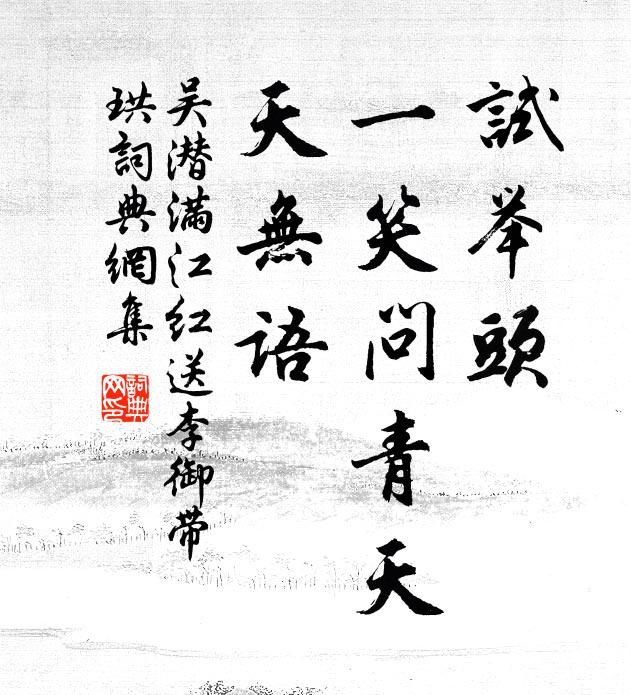 試举頭
一笑問青天
天無語
吴潜满江红送李御带
珙詞典網集
詞典
网印